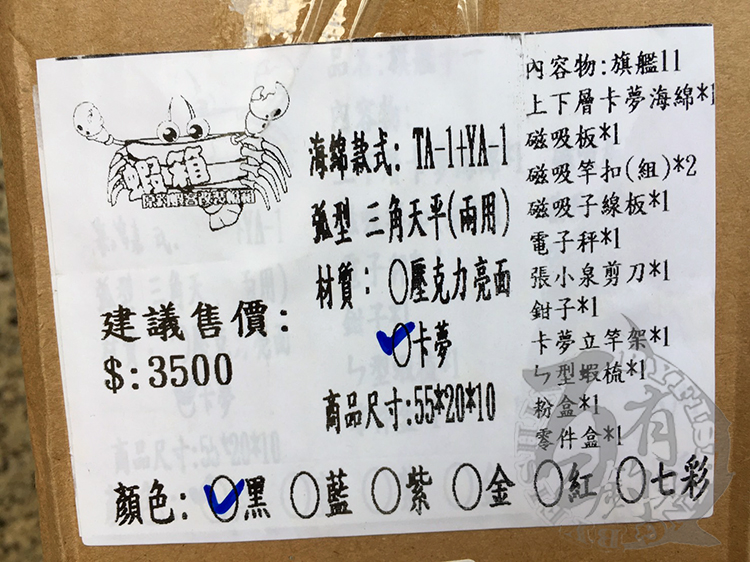 蝦箱
建議售價:
$:3500
海綿款式: TA-1+YA-1
弧型 三角天平(兩用)
材質: 壓克力亮面
卡夢
商品尺寸:55*20*10
內容物:旗艦11
上下層卡夢海綿*1
磁吸板*1
磁吸竿扣(組)*2
磁吸子線板*1
電子秤*1
張小泉剪刀*1
鉗子*1
卡夢立竿架*1
ㄣ型蝦梳*1
粉盒*1
零件盒*1
顏色: 黑 藍 紫 金 紅 七彩